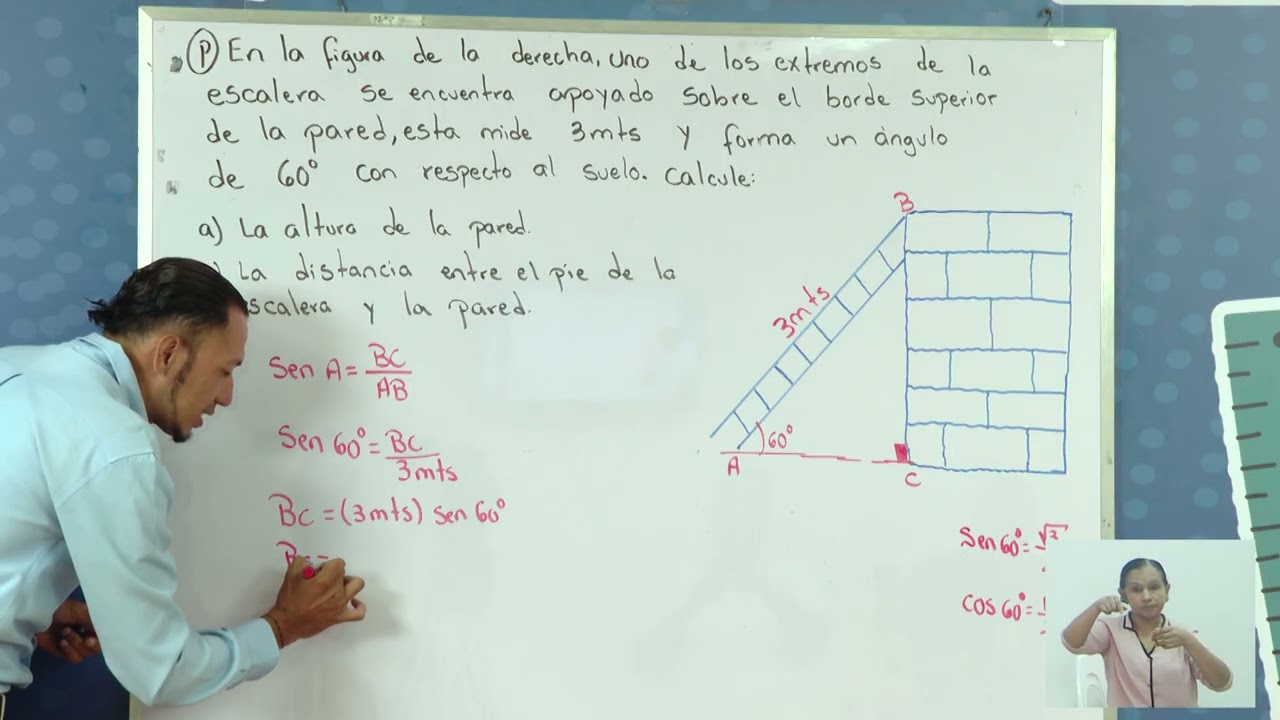 P En la figura de la derecha, uno de los extremos de la
escalera se encuentra apoyado sobre el borde superior
de la pared, esta mide 3mts y forma un ángulo
de 60° con respecto al suelo. Calcule:
a) La altura de la pared.
La distancia entre el pie de la
scalera y la pared.
Sen A = BC
AB
Sen 60° = BC
3mts
BC = (3mts) sen 60°
BC =
B
3mts
60°
A
C
Sen 60° =
Cos 60° = 1